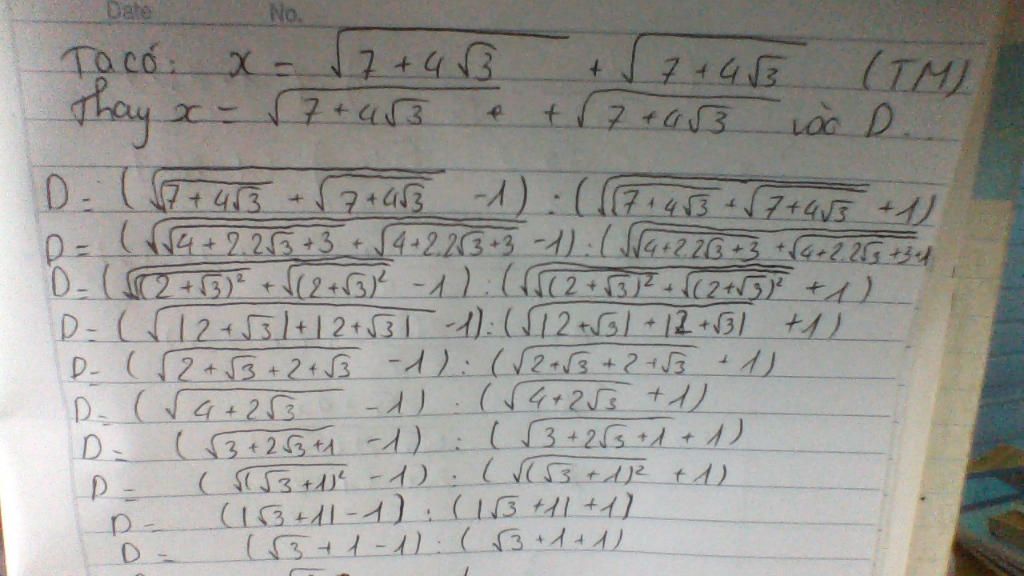 Date No.
Ta có: x = √(7+4√3) + √(7+4√3) (TM)
Thay x = √(7+4√3) + √(7+4√3) vào D.
D = (√(√(7+4√3) + √(7+4√3)) - 1) : (√(√(7+4√3) + √(7+4√3)) + 1)
D = (√(√(4+2.2√3+3) + √(4+2.2√3+3)) - 1) : (√(√(4+2.2√3+3) + √(4+2.2√3+3)) + 1
D = (√(√((2+√3)²) + √((2+√3)²)) - 1) : (√(√((2+√3)²) + √((2+√3)²)) + 1)
D = (√(|2+√3|+|2+√3|) - 1) : (√(|2+√3|+|2+√3|) + 1)
D = (√(2+√3+2+√3) - 1) : (√(2+√3+2+√3) + 1)
D = (√(4+2√3) - 1) : (√(4+2√3) + 1)
D = (√(3+2√3+1) - 1) : (√(3+2√3+1) + 1)
D = (√((√3+1)²) - 1) : (√((√3+1)²) + 1)
D = (|√3+1| - 1) : (|√3+1| + 1)
D = (√3+1-1) : (√3+1+1)